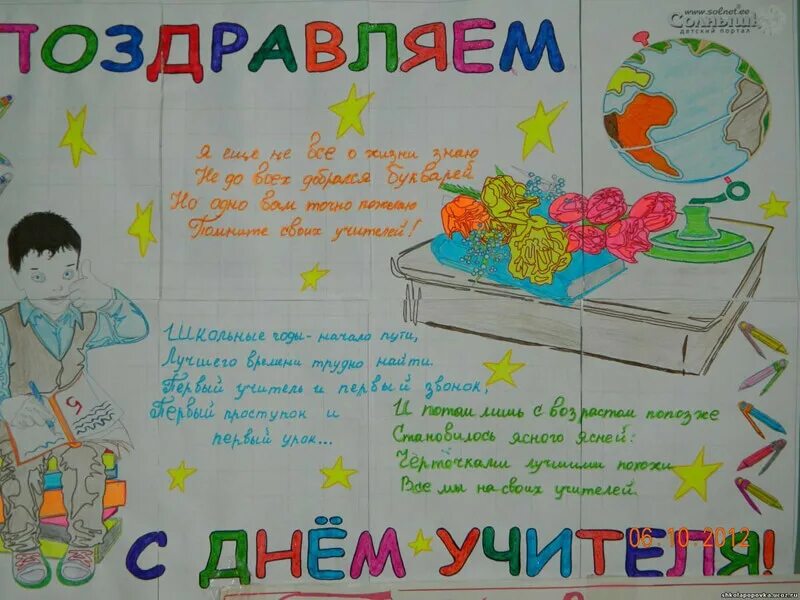 ПОЗДРАВЛЯЕМ
www.solnet.ee
Солнышк
детский портал
Я еще не все о жизни знаю
Не до всех добрался букварей
Но одно вам точно пожелаю
Помните своих учителей!
Школьные годы - начало пути,
Лучшего времени трудно найти.
Первый учитель и первый звонок,
Первый проступок и
первый урок...
И потом лишь с возрастом попозже
Становилось ясного ясней:
Чёрточками лучшими похожи
Все мы на своих учителей.
С ДНЁМ УЧИТЕЛЯ!
06.10.2012
shkolapopovka.ucoz.ru